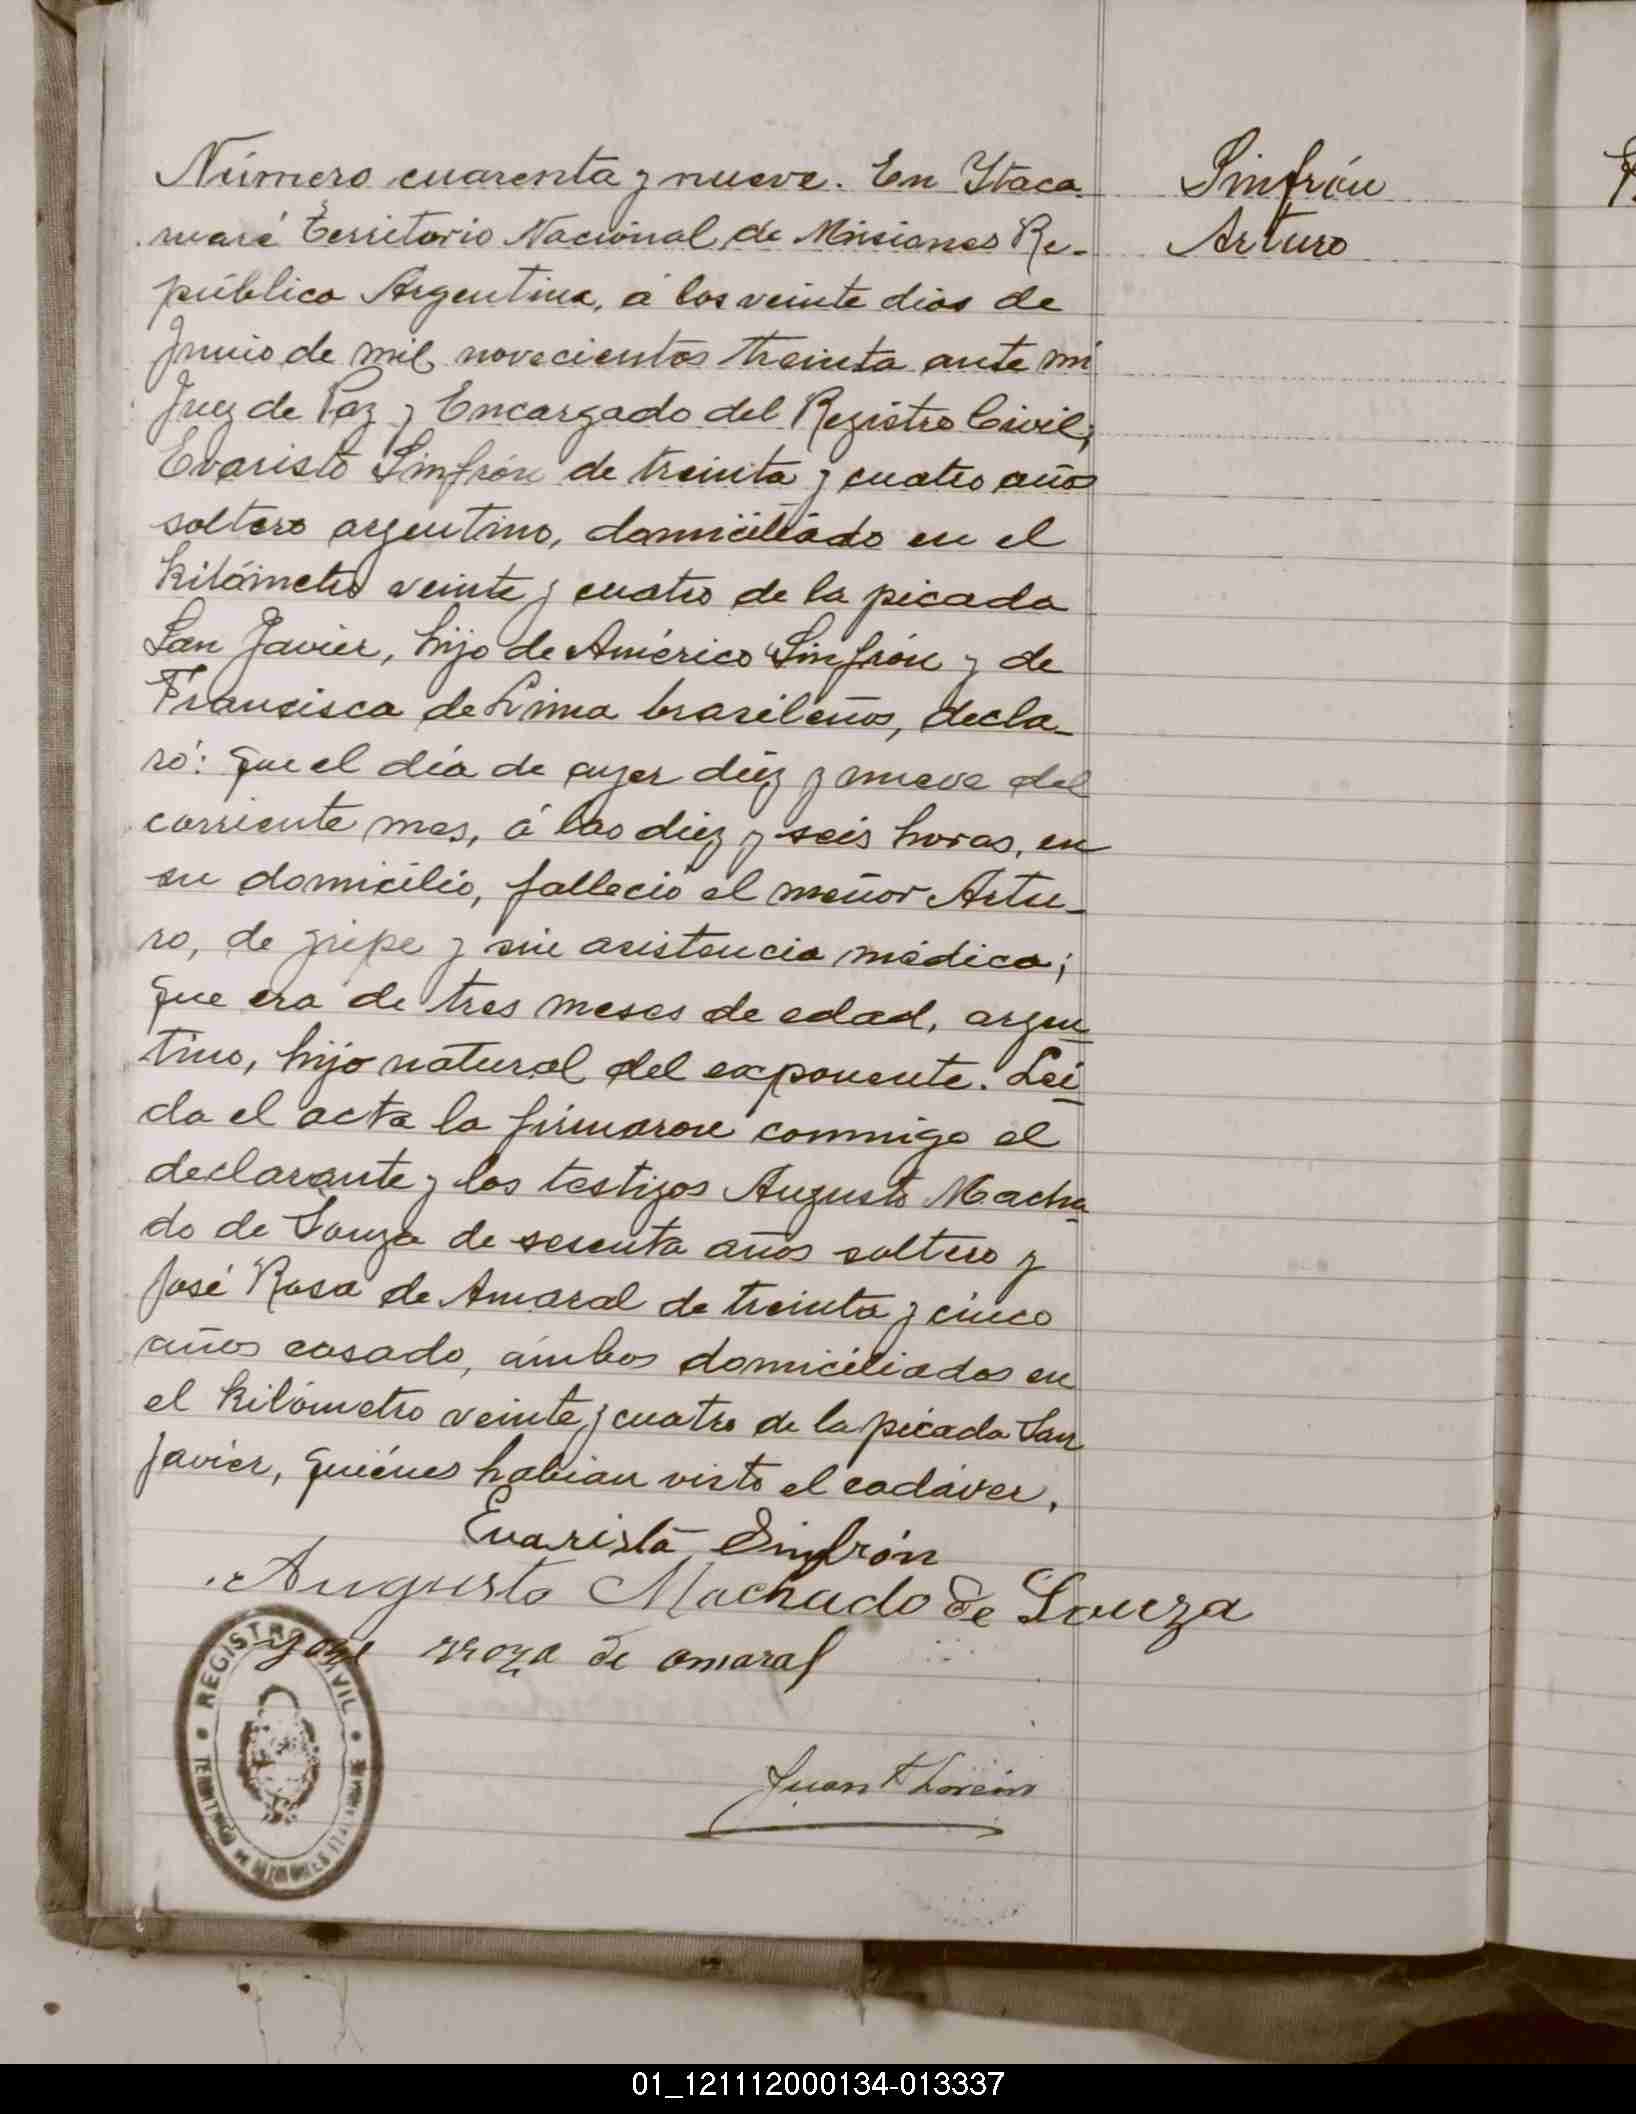 Número cuarenta y nueve. En Ytaca
ruaré Territorio Nacional de Misiones Re-
pública Argentina, á los veinte dias de
Junio de mil novecientos treinta ante mi
Juez de Paz y Encargado del Registro Civil,
Evaristo Sinfrón de treinta y cuatro años
soltero argentino, domiciliado en el
Kilómetro veinte y cuatro de la picada
San Javier, hijo de Américo Sinfrón y de
Francisca de Lima brasileños, decla-
ró: que el día de ayer diez y nueve del
corriente mes, á las diez y seis horas, en
su domicilio, falleció el menor Artu-
ro, de gripe y sin asistencia médica;
que era de tres meses de edad, argen
tino, hijo natural del exponente. Lei
da el acta la firmaron conmigo el
declarante y los testigos Augusto Macha
do de Souza de sesenta años soltero y
José Rosa de Amaral de treinta y cinco
años casado, ámbos domiciliados en
el Kilómetro veinte y cuatro de la picada San
Javier, quiénes habian visto el cadáver.
Evaristo Sinfrón
Augusto Machado de Souza
de amaral
Juan
Sinfrón
Arturo
REGISTRO CIVIL
TERRITORIO DE MISIONES
01_121112000134-013337